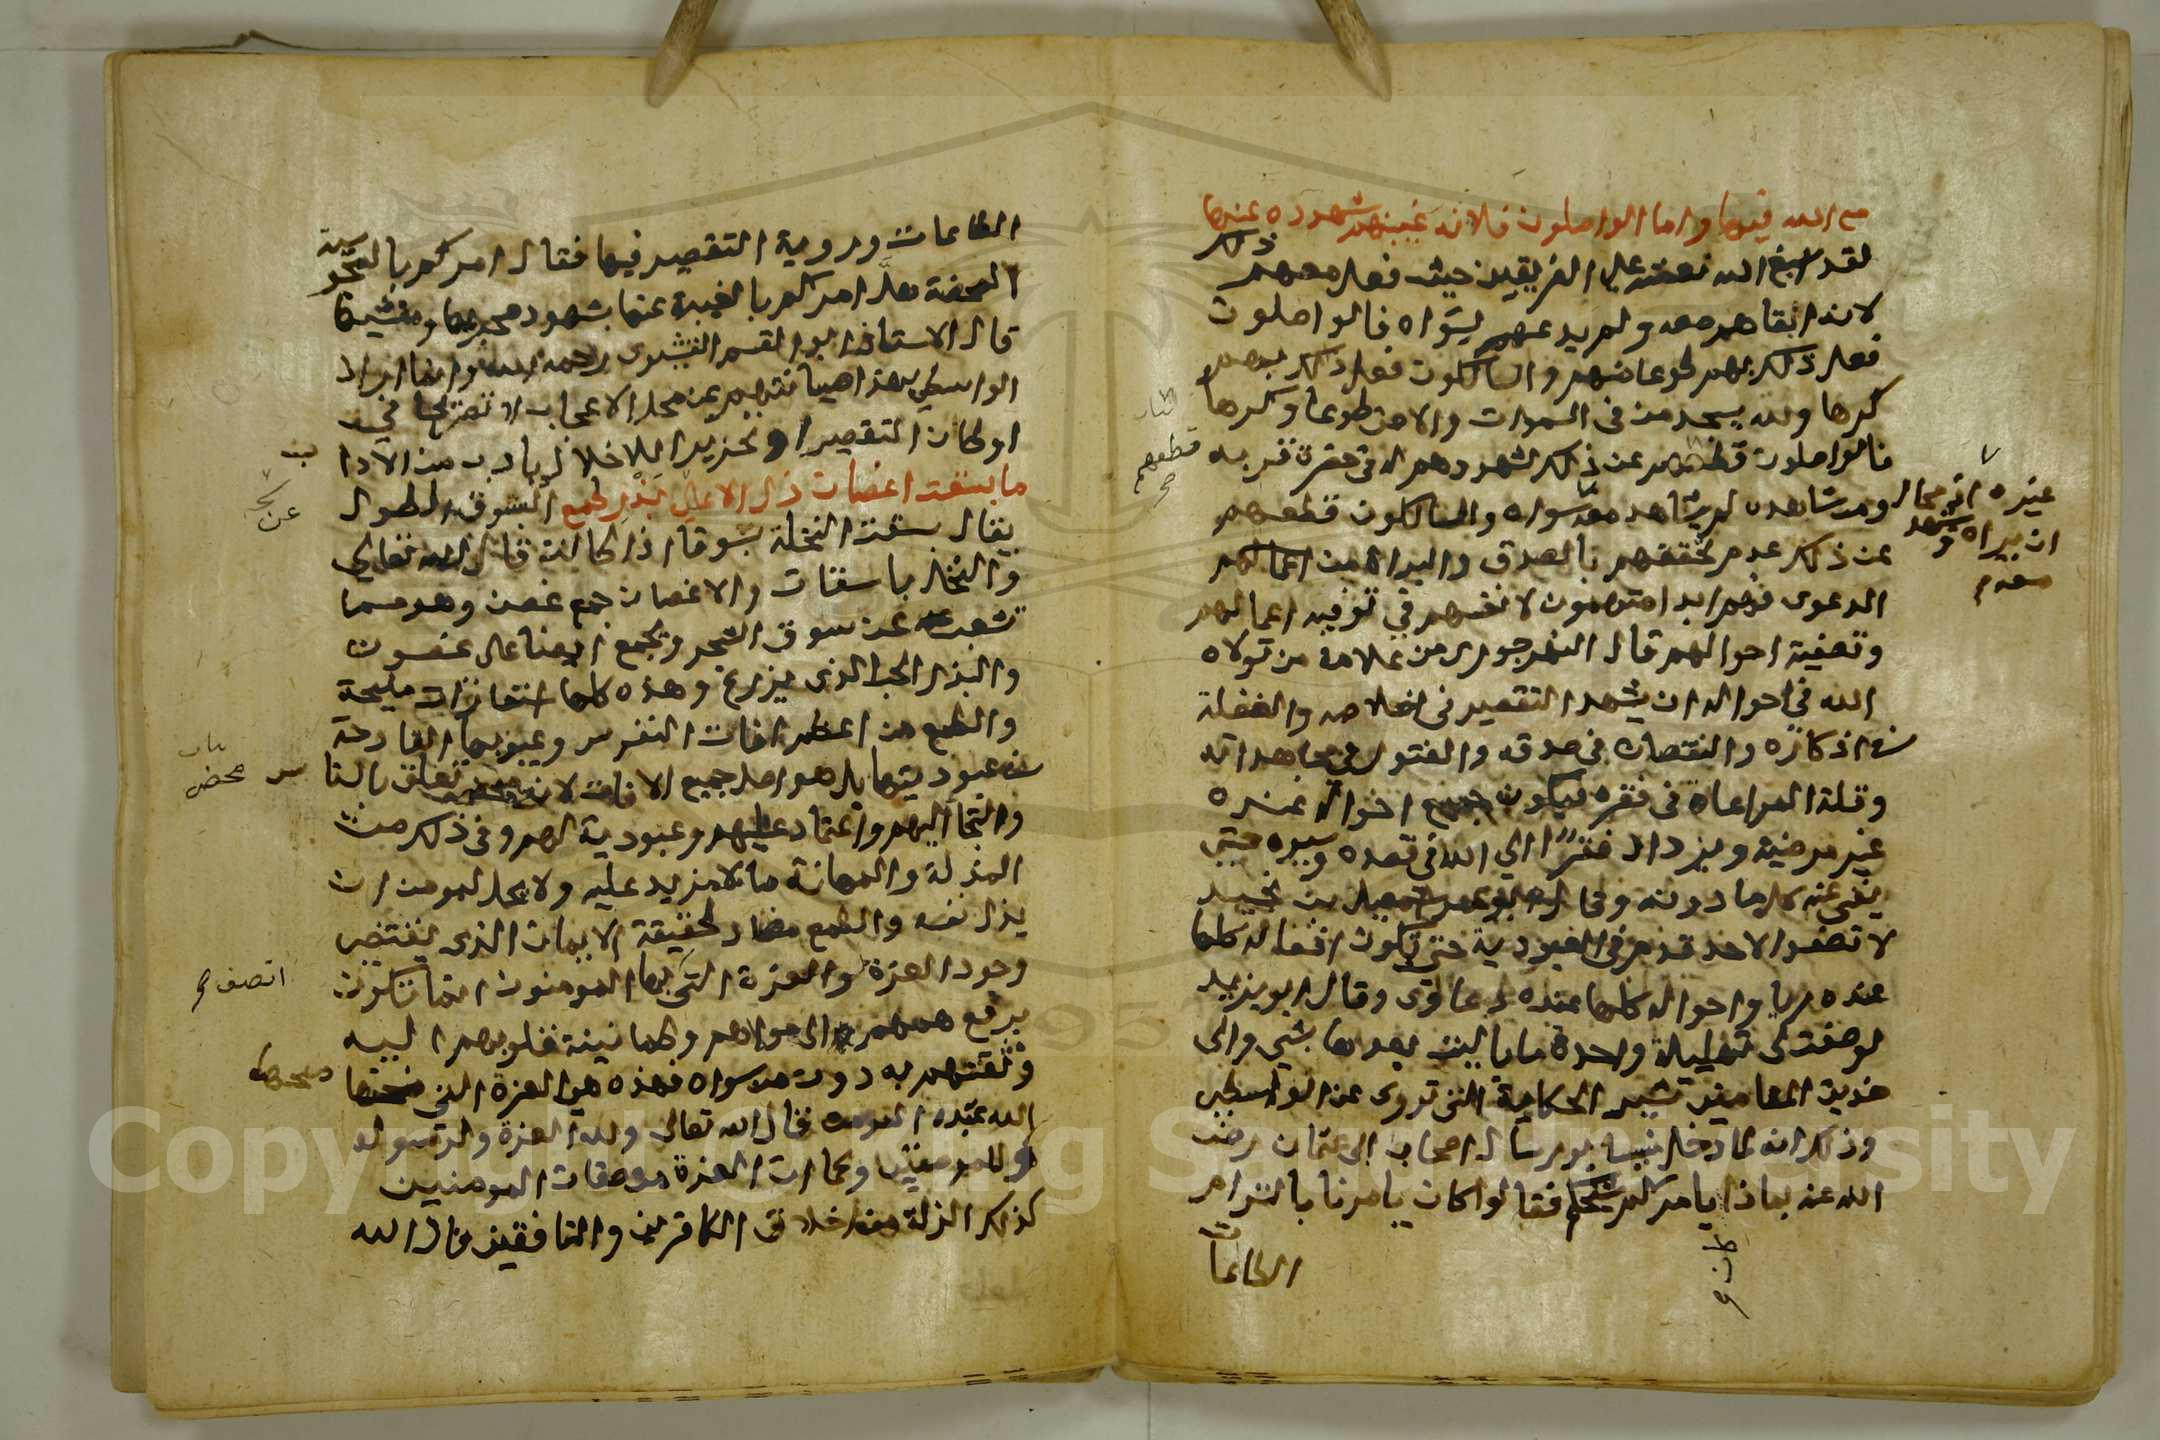 مع الله فيها واما الواصلون فلانه غيبهم شهوده عنها
لقد اسبغ الله نعمته على الفريقين حيث فعل معهم ذلك
لانه ابقاهم معه ولم يدعهم لسواه فالواصلون
فعل ذلك بهم طوعا منهم والسالكون فعل ذلك بهم
كرها ولله يسجد من فى السموات والارض طوعا وكرها
فالواصلون قطعهم عن ذلك شهودهم له فى حضرة قربه
ومن شاهده لم يشاهد معه سواه والسالكون قطعهم
غيره اذ محال
ان يراه ويشهد
معه م
قطعهم
صح
عن ذلك عدم تحققهم بالصدق والبراة من اعمالهم
الدعوى فهم ابدا متهمون لانفسهم في توفيه اعمالهم
وتصفية احوالهم قال النهرجورى من علامة من تولاه
الله في احواله ان يشهد التقصير فى اخلاصه والغفلة
فى اذكاره والنقصان في صدقه والفتور في مجاهداته
وقلة المراعاة فى فقره فيكون جميع احواله عنده
غير مرضية ويزداد فقرا الي الله في قصده وسيره حتى
يفنى عنه كل ما دونه وقال ابو عمرو اسمعيل بن نجيد
لا تصفوا لاحد قدم في العبودية حتى تكون افعاله كلها
عنده ريا واحواله كلها عنده دعاوى وقال ابو يزيد
لو صفت لى تهليلة واحدة ما باليت بعدها بشي والى
هذين المقامين تشير الحكاية التى تروى عن الواسطي
وذكر انه لما دخل نيسابور سال اصحاب ابى عثمان رضى
الله عنه بماذا يامركم شيخكم فقالوا كان يامرنا بالتزام
الطاعات
الطاعات وروية التقصير فيها فقال امركم بالمجوسية
المحضة هلا امركم بالغيبة عنها بشهود مجريها ومنشيها
قال الاستاذ ابو القسم القشيرى رحمه الله وانما اراد
الواسطي بهذا صيانتهم عن محل الاعجاب لا تعريجا في
اوطان التقصير او تجويزا للاخلال بادب من الادا
ما بسقت اغصان ذل الا على بذر طمع البسوق الطول
يقال بسقت النخلة بسوقا اذا طالت قال الله تعالى
والنخل باسقات والاغصان جمع غصن وهو ما
تشعب عن سوق الشجر ويجمع ايضا على غصون
والبذر الحب الذى يزرع وهذه كلها استعارات مليحة
والطمع من اعظم افات النفوس وعيوبها القادحة
فى عبوديتها بل هو اصل جميع الافات لانه محض تعلق بالنا
س محض
والتجا اليهم واعتماد عليهم وعبودية لهم وفى ذلك من
المذلة والمهانة ما لا مزيد عليه ولا يحل لمومن ان
يذل نفسه والطمع مضاد لحقيقة الايمان الذى يقتضى
وجود العزة والعزة التى بها المومنون انما تكون
اتصف م
برفع هممهم الى مولاهم وطمانينة قلوبهم اليه
وثقتهم به دون من سواه فهذه هى العزة التى منحها
منحها
الله عبده المومن قال الله تعالى ولله العزة ولرسوله
وللمومنين وكما ان العزة من صفات المومنين
كذلك الذلة من اخلاق الكافرين والمنافقين قال الله
Copyright © King Saud University